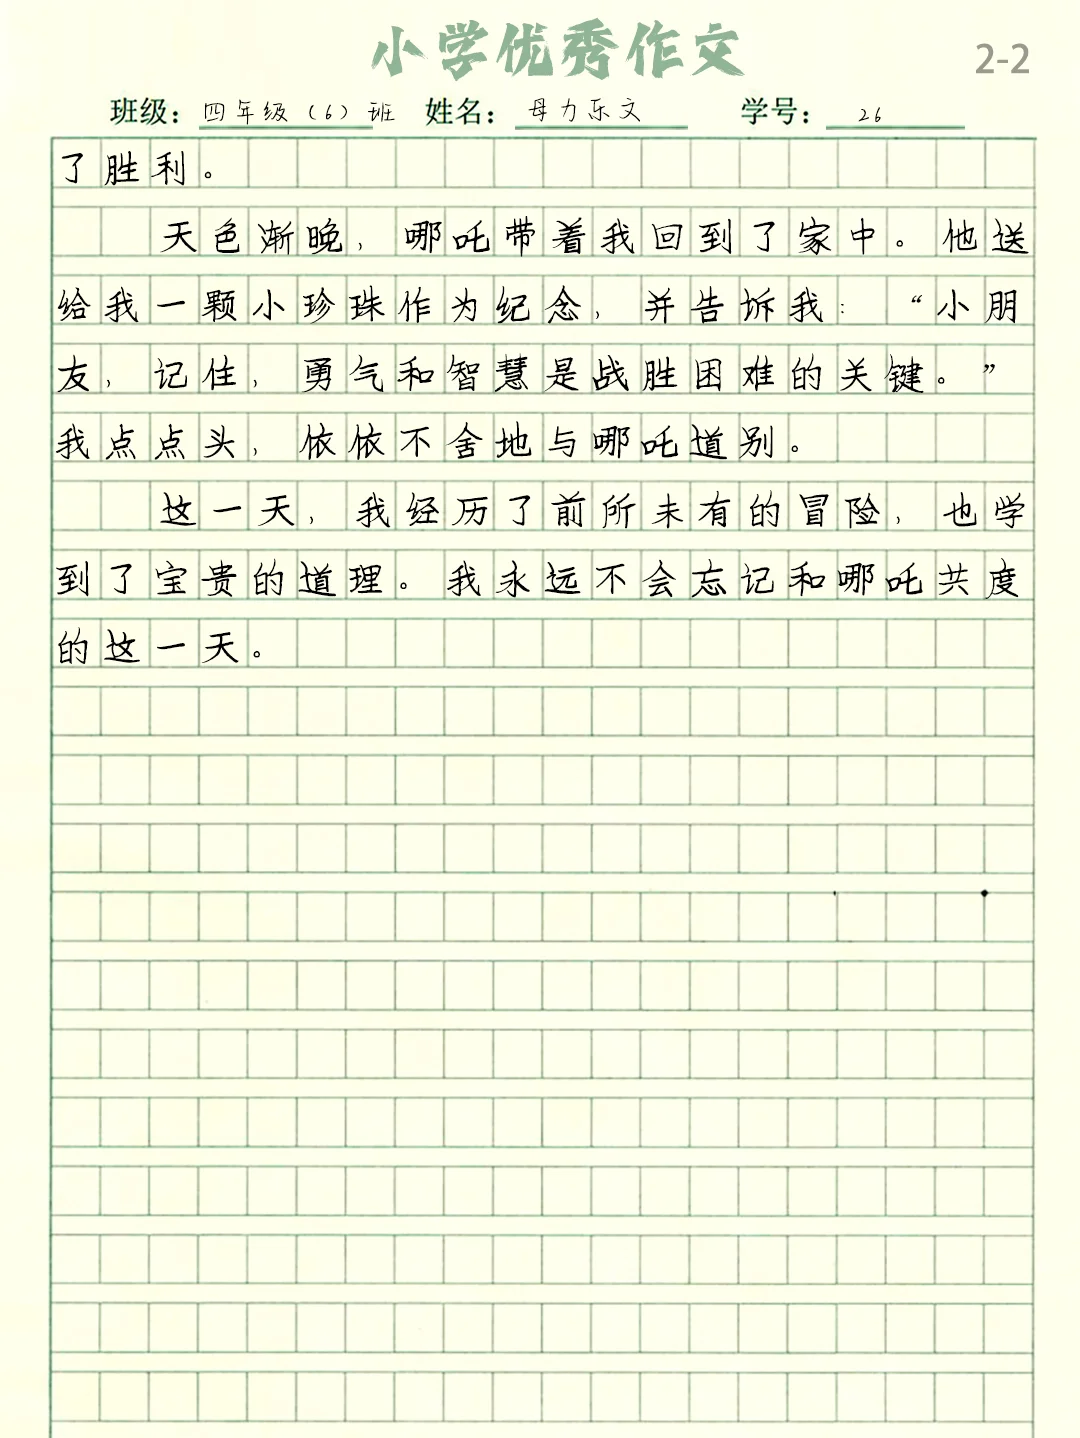 小学优秀作文
2-2
班级：四年级（6）班 姓名：母力乐文 学号：26
了胜利。
天色渐晚，哪吒带着我回到了家中。他送
给我一颗小珍珠作为纪念，并告诉我：“小朋
友，记住，勇气和智慧是战胜困难的关键。”
我点点头，依依不舍地与哪吒道别。
这一天，我经历了前所未有的冒险，也学
到了宝贵的道理。我永远不会忘记和哪吒共度
的这一天。